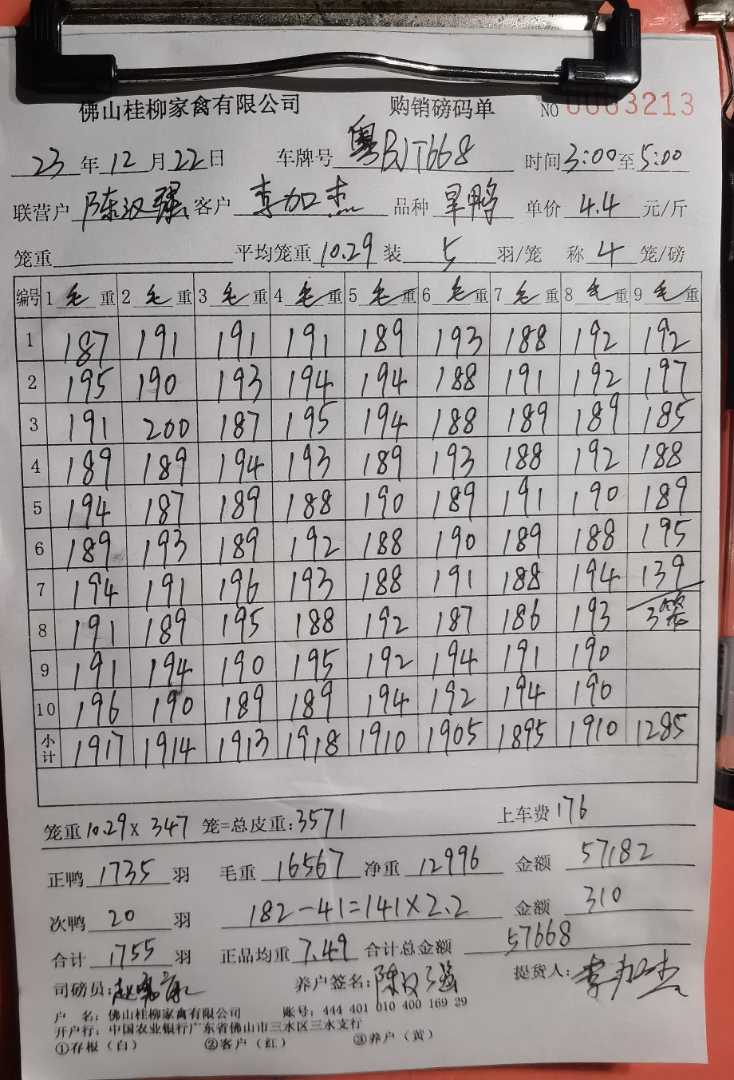 佛山桂柳家禽有限公司 购销磅码单 NO 0003213
23年12月22日 车牌号 粤BJT668 时间3:00至5:00
联营户 陈汉强 客户 李加杰 品种 旱鸭 单价 4.4 元/斤
笼重 平均笼重10.29 装 5 羽/笼 称 4 笼/磅
编号 1 毛 重 2 毛 重 3 毛 重 4 毛 重 5 毛 重 6 毛 重 7 毛 重 8 毛 重 9 毛 重
1 187 191 191 191 189 193 188 192 192
2 195 190 193 194 194 188 191 192 197
3 191 200 187 195 194 188 189 189 185
4 189 189 194 193 189 193 188 192 188
5 194 187 189 188 190 189 191 190 189
6 189 193 189 192 188 190 189 188 195
7 194 191 196 193 188 191 188 194 139
8 191 189 195 188 192 187 186 193 3笼
9 191 194 190 195 192 194 191 190
10 196 190 189 189 194 192 194 190
小计 1917 1914 1913 1918 1910 1905 1895 1910 1285
笼重10.29×347 笼=总皮重:3571 上车费176
正鸭 1735 羽 毛重 16567 净重 12996 金额 57182
次鸭 20 羽 182-41=141×2.2 金额 310
合计 1755 羽 正品均重 7.49 合计总金额 57668
司磅员: 养户签名:陈汉强 提货人:李加杰
户 名:佛山桂柳家禽有限公司 账号:444 401 010 400 169 29
开户行:中国农业银行广东省佛山市三水区三水支行
①存根(白) ②客户(红) ③养户(黄)